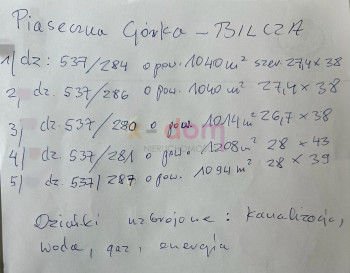 Piaseczna Górka - BILCZA
1) dz: 537/284 o pow. 1040 m² szer. 27,4 x 38
2) dz. 537/286 o pow. 1040 m² 27,4 x 38
3) dz. 537/280 o pow. 1014 m² 26,7 x 38
4) dz. 537/281 o pow. 1208 m² 28 x 43
5) dz. 537/287 o pow. 1094 m² 28 x 39
dom
NIERUCHOMOŚCI
Działki uzbrojone: kanalizacja,
woda, gaz, energia